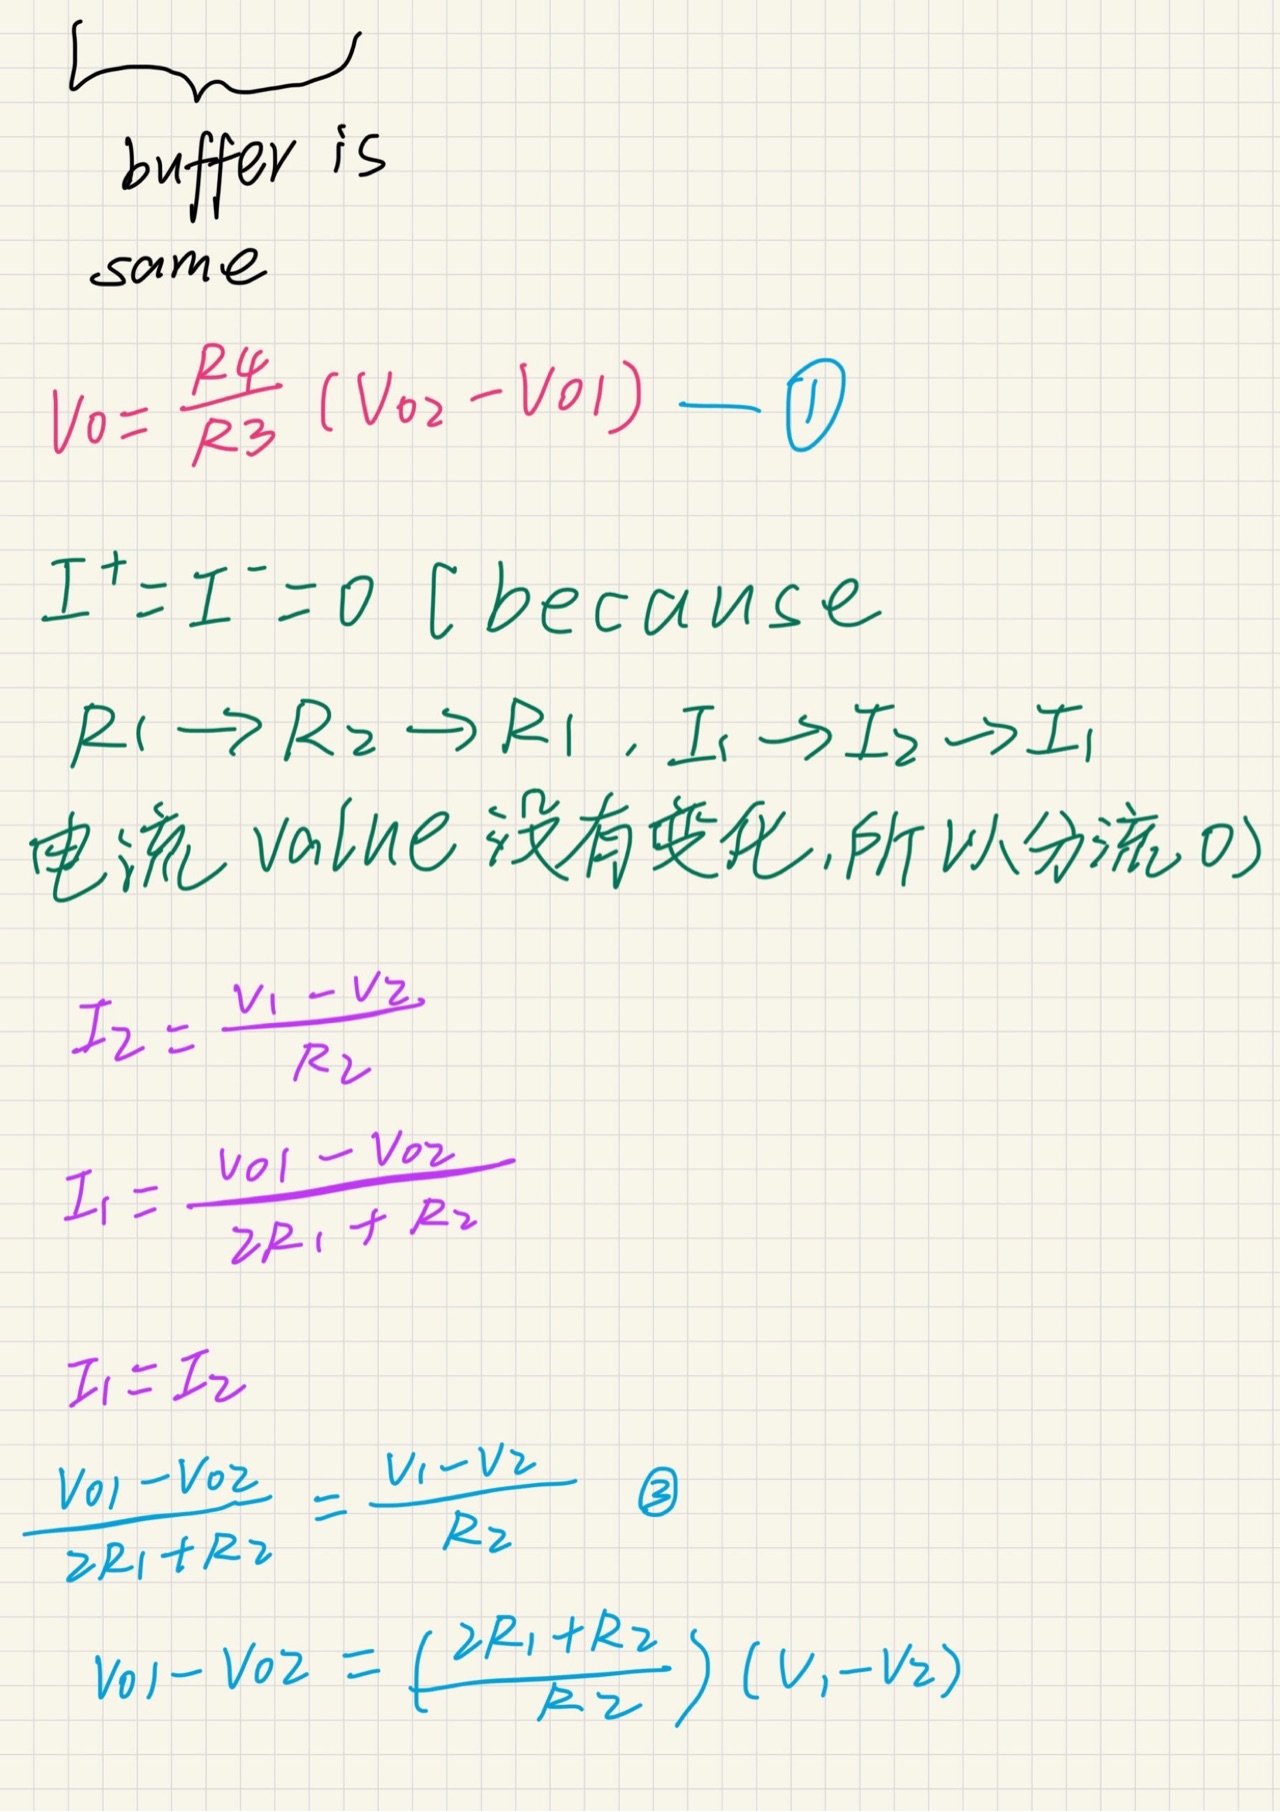 buffer is
same
V0 = R4/R3 (V02 - V01) — ①
I⁺ = I⁻ = 0 [because
R1 → R2 → R1, I1 → I2 → I1
电流 value 没有变化,所以分流 0)
I2 = V1 - V2 / R2
I1 = V01 - V02 / 2R1 + R2
I1 = I2
V01 - V02 / 2R1 + R2 = V1 - V2 / R2 ③
V01 - V02 = (2R1 + R2 / R2) (V1 - V2)